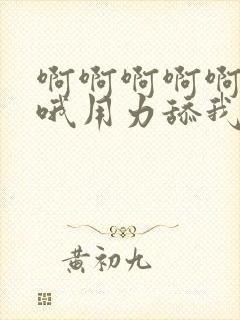 啊啊啊啊啊
哦用力舔我
黄初九